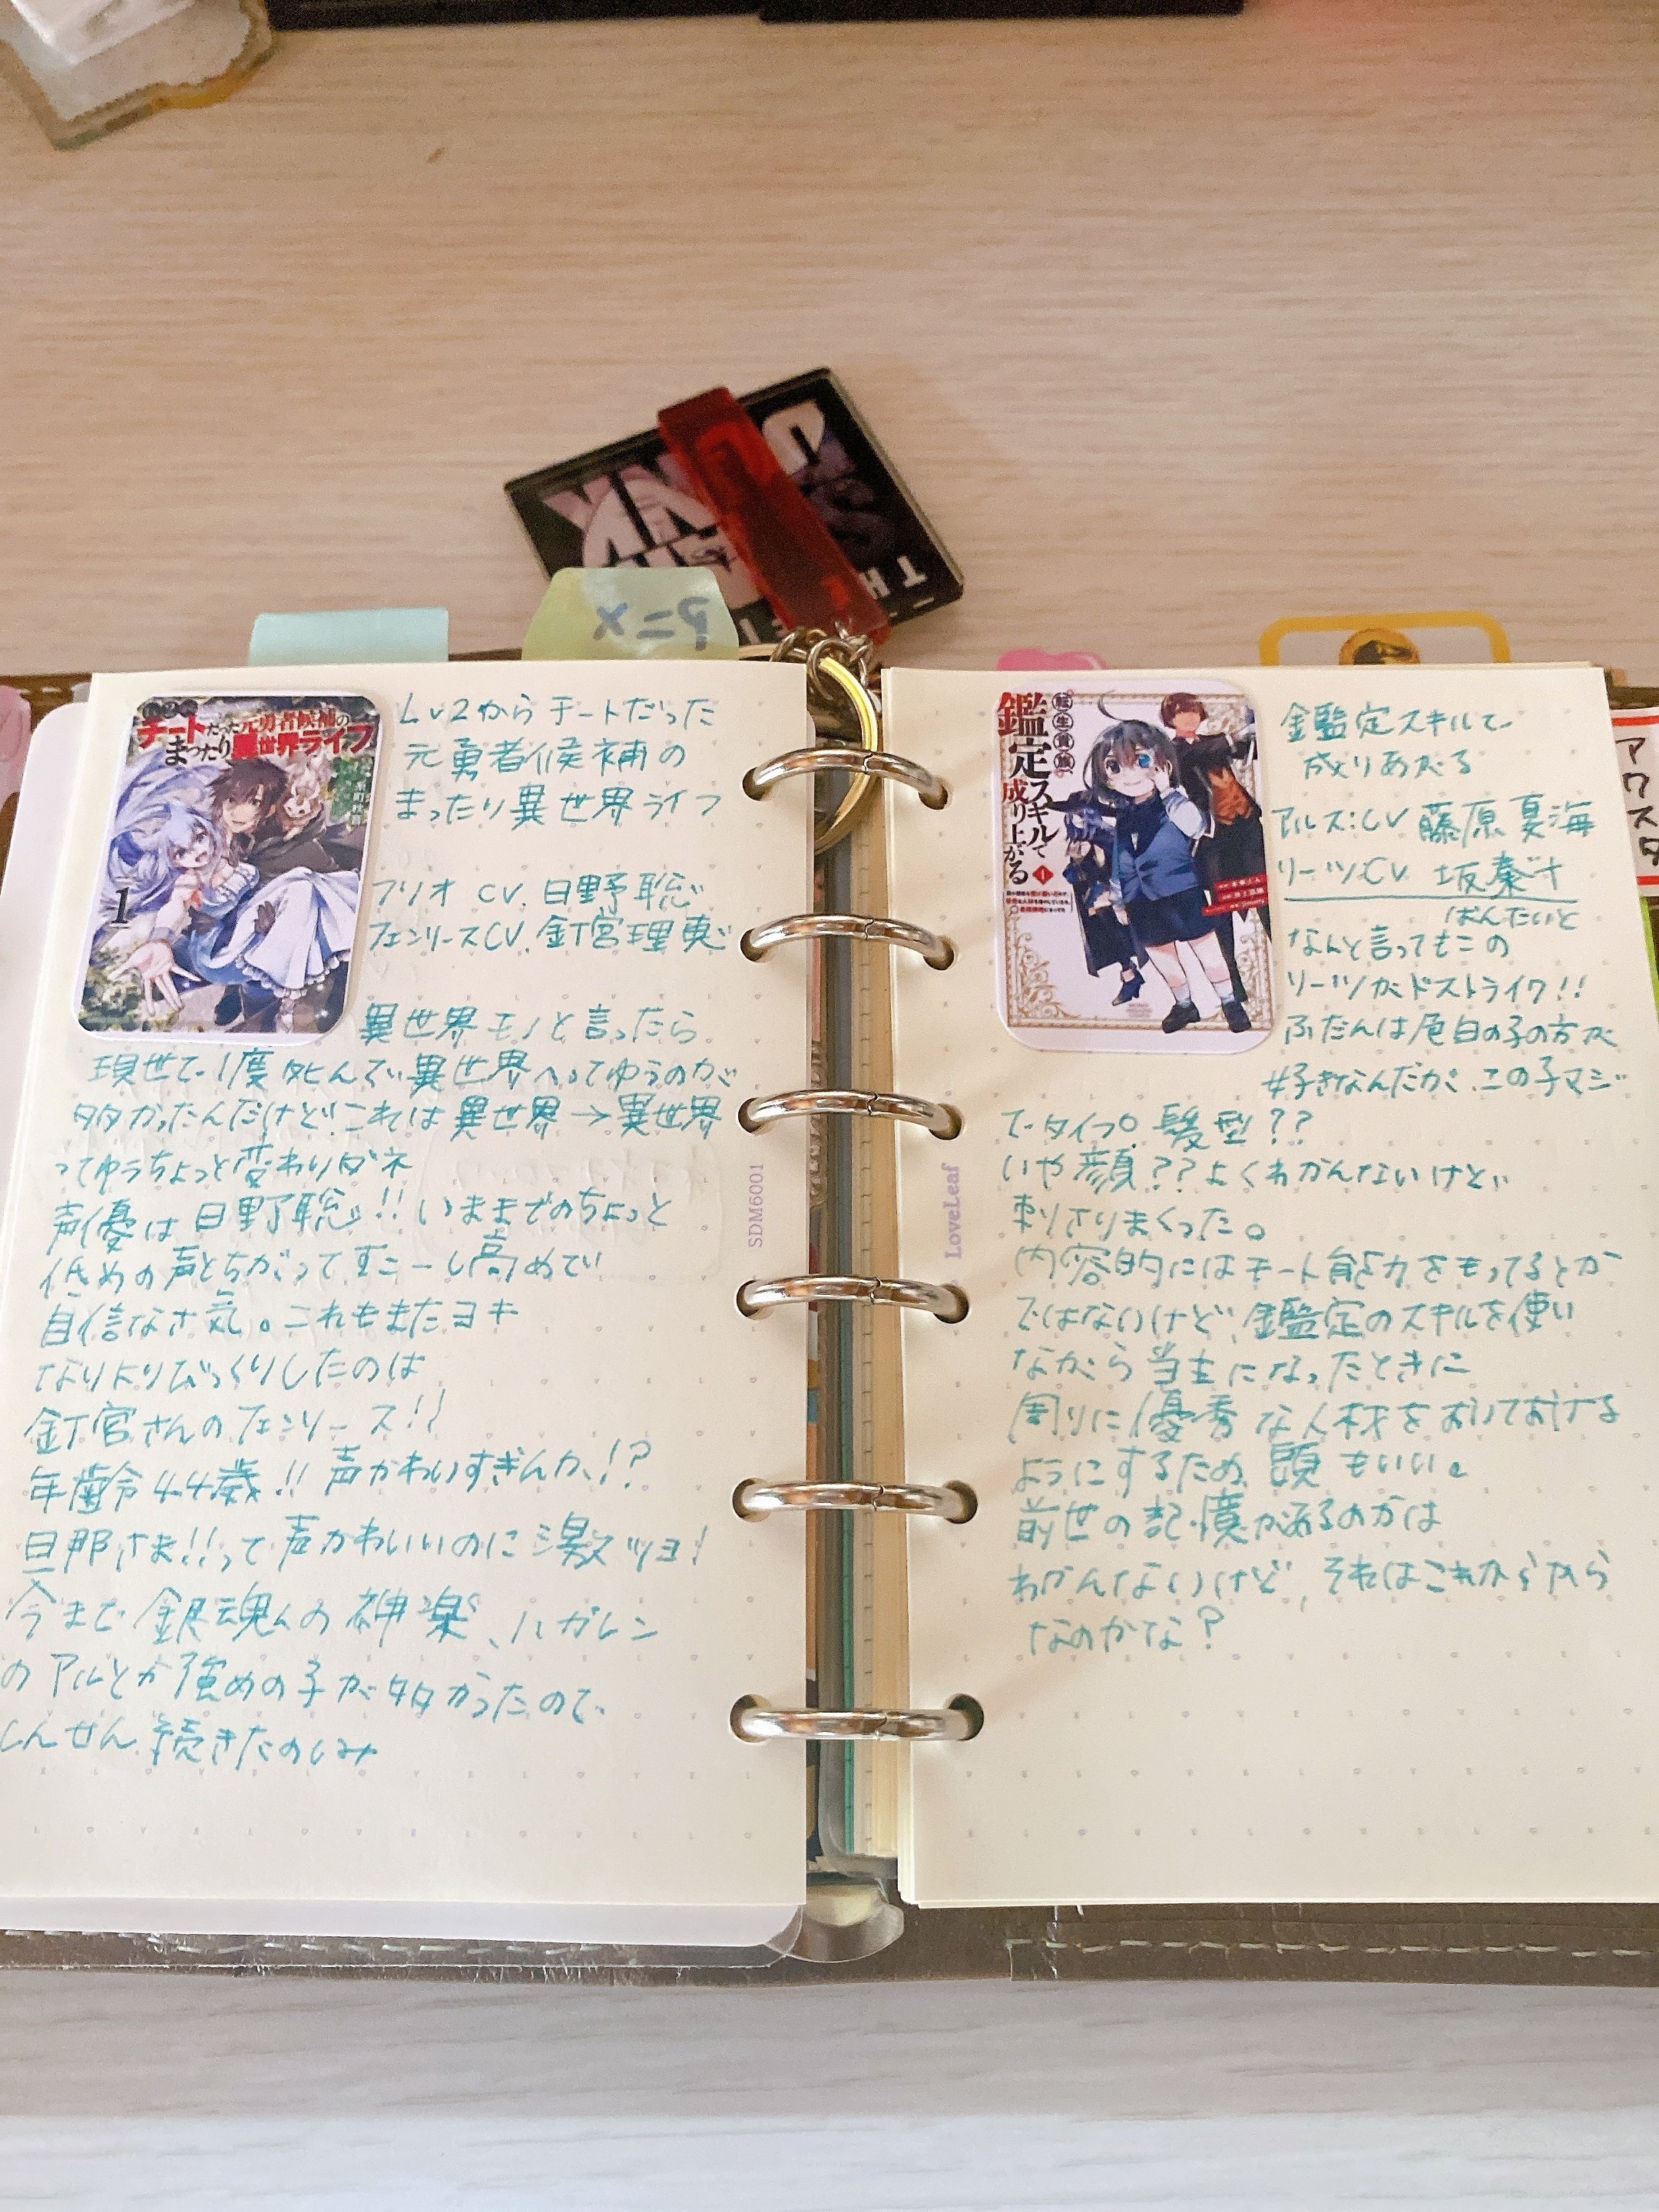 アニメ
アクスタ
チートだった元勇者候補の
まったり異世界ライフ
1
Lv2からチートだった
元勇者候補の
まったり異世界ライフ
フリオ CV.日野聡
フェンリースCV.釘宮理恵
異世界モノと言ったら
現世で1度死んで異世界へってゆうのが
多かったんだけどこれは異世界→異世界
ってゆうちょっと変わりダネ
声優は日野聡!!いままでのちょっと
低めの声とちがってすこーし高めで
自信なさ気。これもまたヨキ
なりよりびっくりしたのは
釘宮さんのフェンリース!!
年齢44歳!!声かわいすぎんか!?
旦那さま!!って声かわいいのに激ツヨ!
今まで銀魂の神楽、ハガレン
のアルとか強めの子が多かったので
しんせん、続きたのしみ
SDM6001
LoveLeaf
転生貴族
鑑定スキルで
成り上がる
1
鑑定スキルで
成りあがる
アルス:CV 藤原夏海
リーツCV 坂泰斗
ばんたいと
なんと言ってもこの
リーツがドストライク!!
ふだんは色白の子の方が
好きなんだが、この子マジ
で・タイプ。髪型??
いや顔??よくわかんないけど
刺さりまくった。
内容的にはチート能力をもってるとか
ではないけど、鑑定のスキルを使い
ながら当主になったときに
周りに優秀な人材をおいておける
ようにするため、頭もいい。
前世の記憶があるのかは
わかんないけど、それはこれからやら
なのかな?